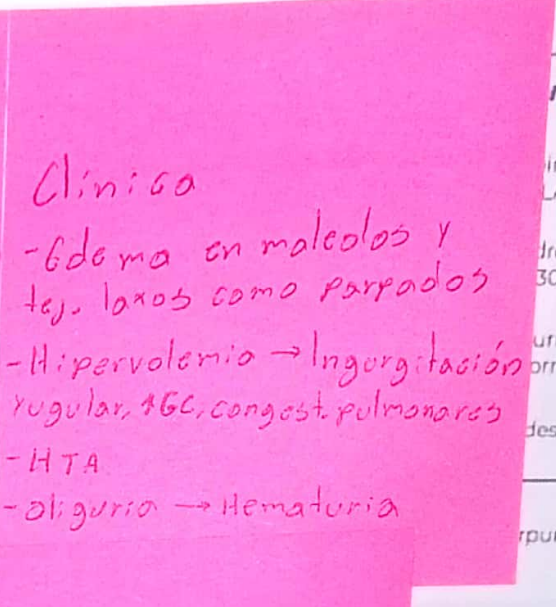 Clínica
-Edema en maleolos y
tej. laxos como parpados
-Hipervolemia → Ingurgitación
yugular, ↑GC, congest. pulmonares
-HTA
-oliguria → Hematuria